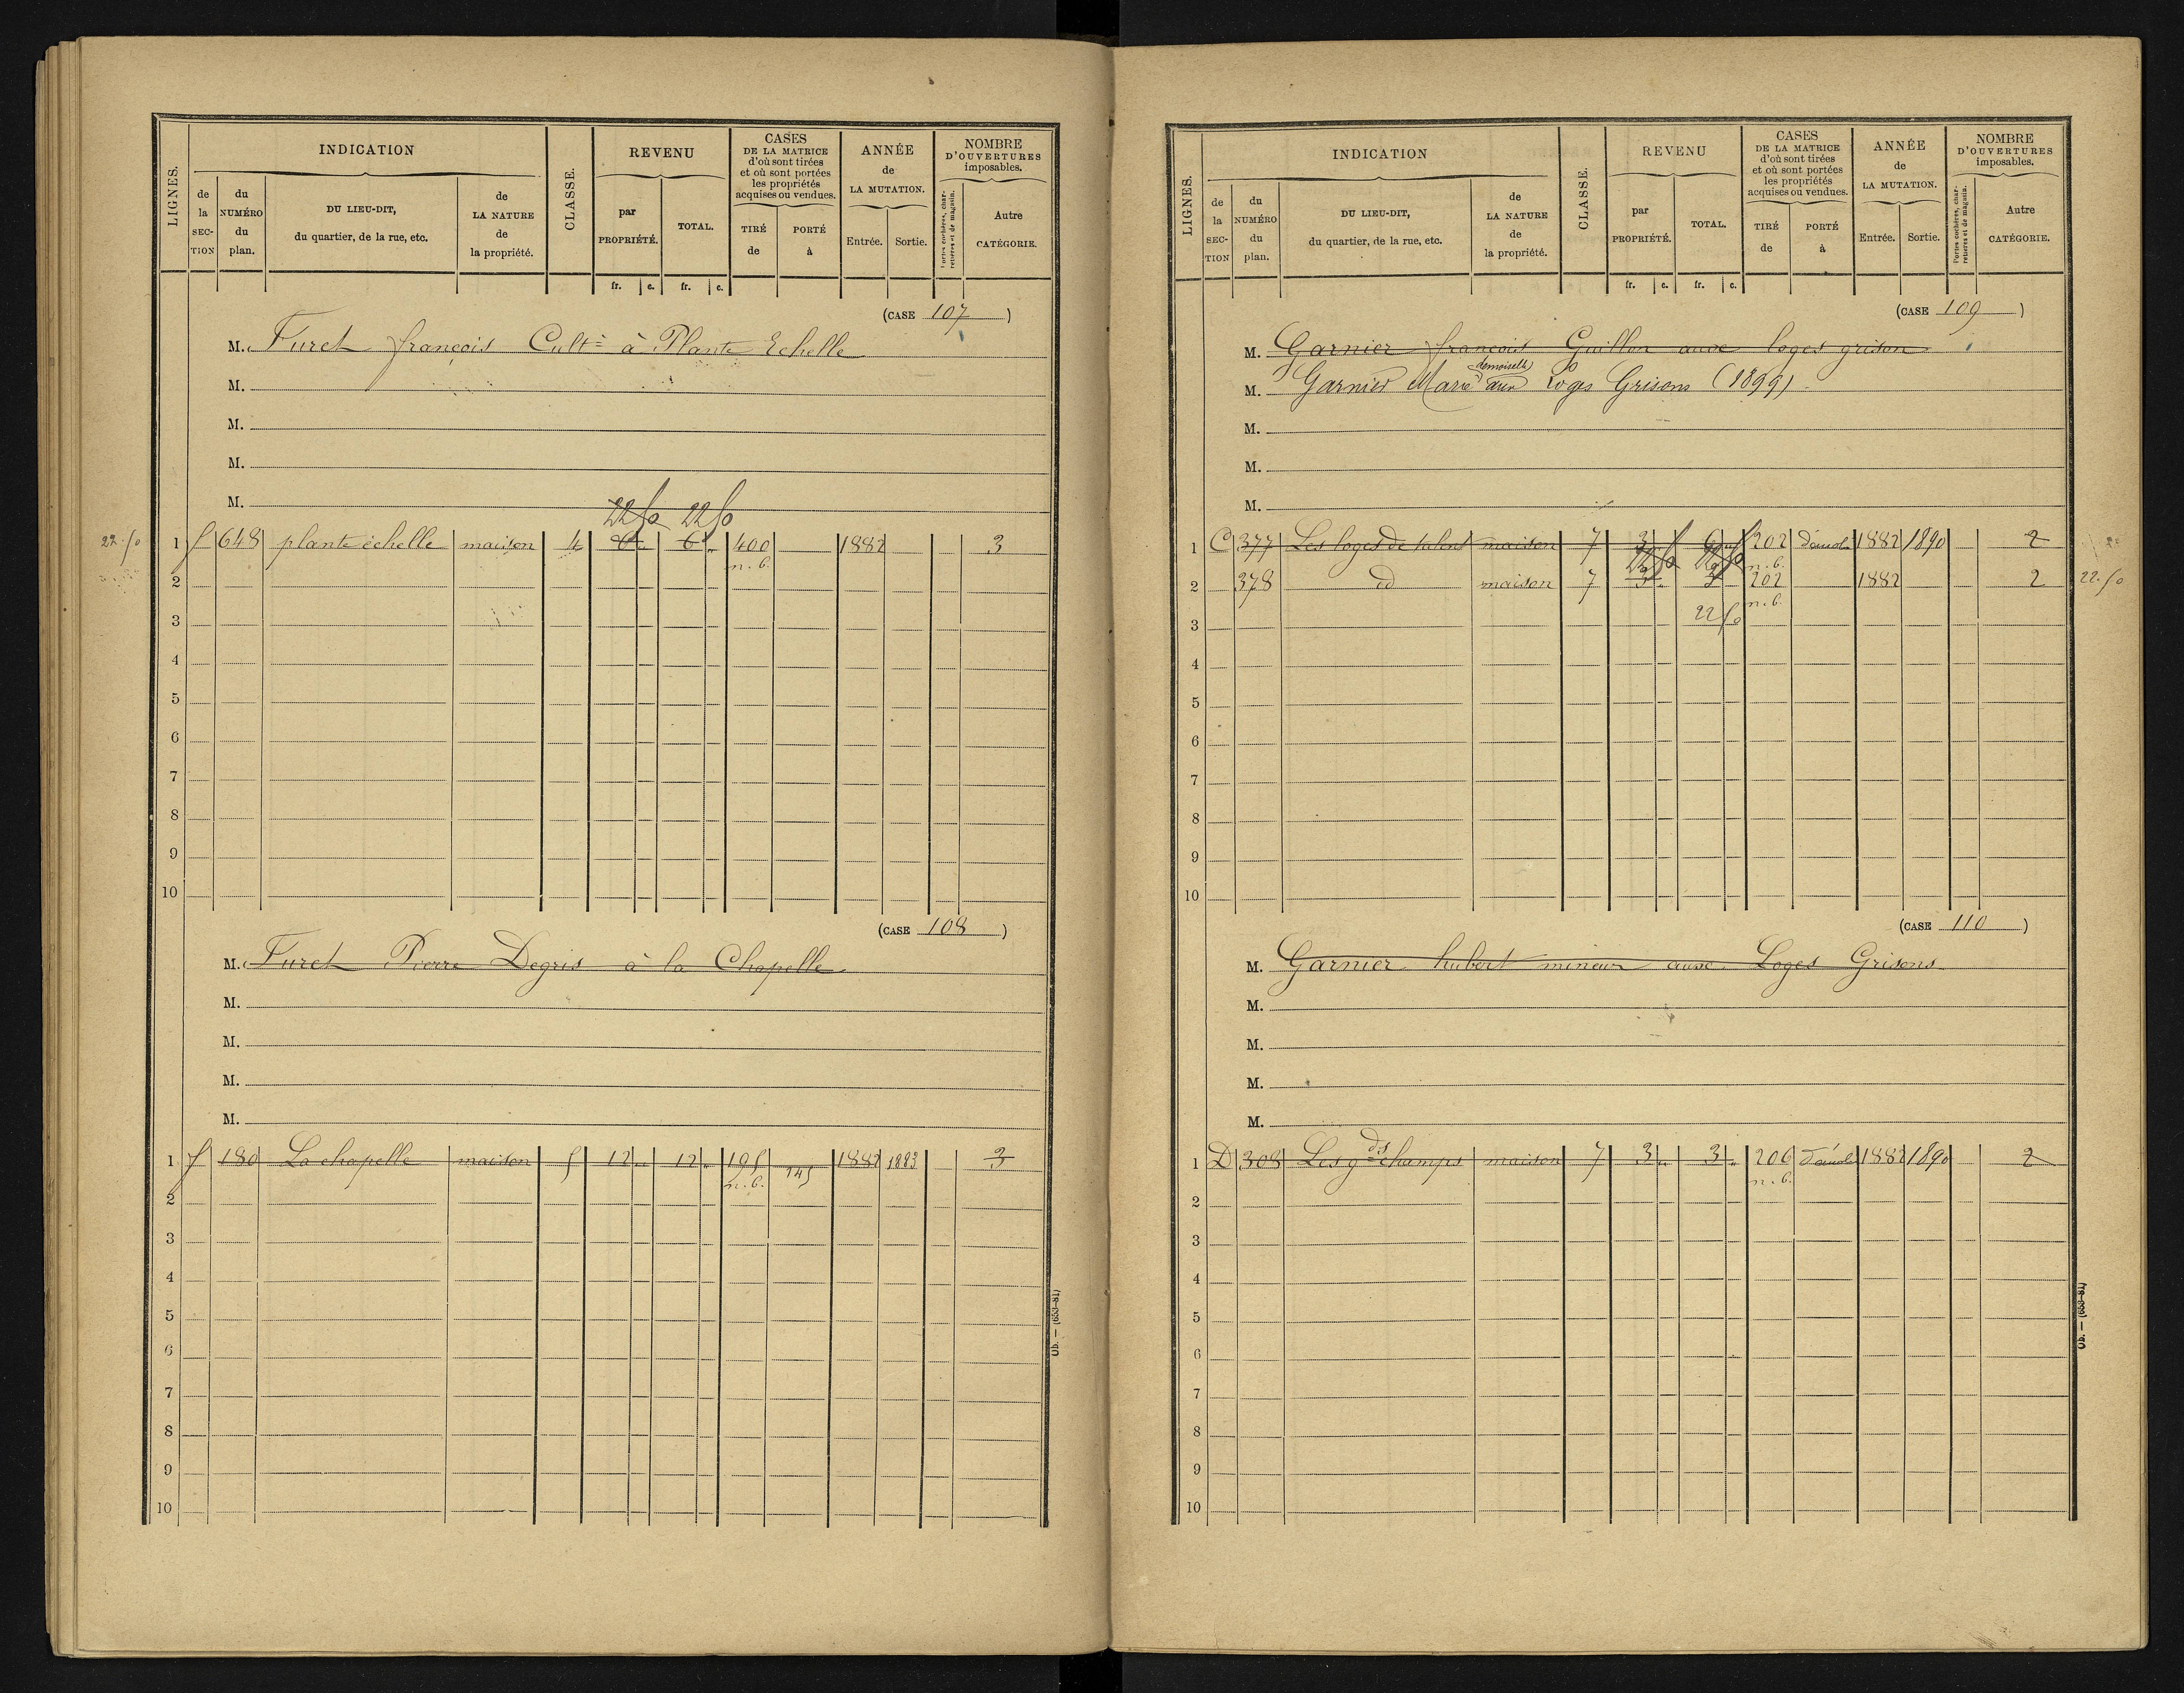 LIGNES.
INDICATION
de la SECTION
du NUMÉRO du plan.
DU LIEU-DIT, du quartier, de la rue, etc.
de LA NATURE de la propriété.
CLASSE.
REVENU
par PROPRIÉTÉ.
TOTAL.
CASES DE LA MATRICE d'où sont tirées et où sont portées les propriétés acquises ou vendues.
TIRÉ de
PORTÉ à
ANNÉE de LA MUTATION.
Entrée.
Sortie.
NOMBRE D'OUVERTURES imposables.
Portes cochères, charretières et de magasin.
Autre CATÉGORIE.
fr. c. fr. c.
(CASE 107)
M. Furet françois Cultr à Plante Echelle
M.
M.
M.
M.
22 50 22 50
22.50 1 f 648 plante échelle maison 4 6 " 6 " 400 1882 3
n.b.
2
3
4
5
6
7
8
9
10
(CASE 108)
M. Furet Pierre Degris à la Chapelle
M.
M.
M.
M.
1 f 180 La chapelle maison 5 12 " 12 " 195 245 1882 1883 3
n.b.
2
3
4
5
6
7
8
9
10
Ob. — (653-81)
LIGNES.
INDICATION
de la SECTION
du NUMÉRO du plan.
DU LIEU-DIT, du quartier, de la rue, etc.
de LA NATURE de la propriété.
CLASSE.
REVENU
par PROPRIÉTÉ.
TOTAL.
CASES DE LA MATRICE d'où sont tirées et où sont portées les propriétés acquises ou vendues.
TIRÉ de
PORTÉ à
ANNÉE de LA MUTATION.
Entrée.
Sortie.
NOMBRE D'OUVERTURES imposables.
Portes cochères, charretières et de magasin.
Autre CATÉGORIE.
fr. c. fr. c.
(CASE 109)
M. Garnier françois Guillon aux loges grison
demoiselle
M. Garnier Marie aux Loges Grisons (1899)
M.
M.
M.
1 C 377 Les loges de maison 7 3 6 202 démol 1882 1890 2
n.b.
2 378 id maison 7 3 3 202 1882 2 22.50
n.b.
22 50
3
4
5
6
7
8
9
10
(CASE 110)
M. Garnier hubert mineur aux Loges Grisons
M.
M.
M.
M.
1 D 308 Les gds champs maison 7 3 " 3 " 206 démol 1882 1890 2
n.b.
2
3
4
5
6
7
8
9
10
Ob. — (653-81)